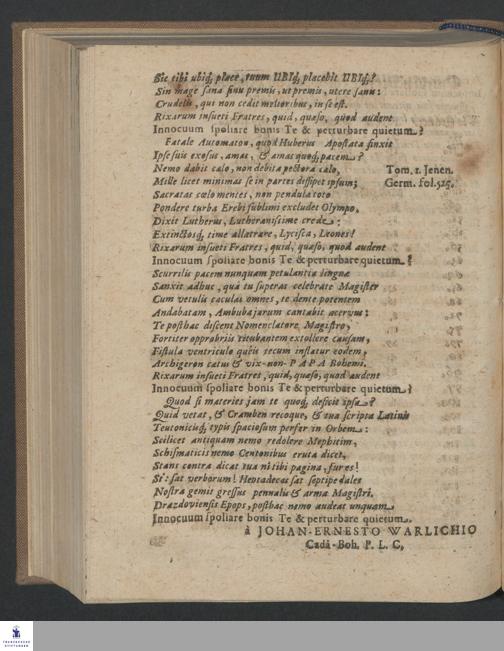 Sic tibi ubiq; place, tuum UBIq; placebit UBIq;?
Sin mage sana sinu premis, ut premis, utere sanu:
Crudelis, qui non cedit melioribus, in se est.
Rixarum insueti Fratres, quid, quæso, quod audent
Innocuum spoliare bonis Te & perturbare quietum?
Fatale Automaton, quod Huberus Apostata finxit
Ipse suis exosus, amas, & amas quoq; pacem?
Nemo dabit calo, non debita pectora calo,
Tom. 1. Jenen.
Mille licet minimas se in partes dissipet ipsum;
Germ. fol. 525.
Sacratas cœlo mentes, non pendula toto
Pondere turba Erebi sublimi excludet Olympo,
Dixit Lutherus, Lutheranissime crede:
Extinctosq; time allatrare, Lycisca, Leones!
Rixarum insueti Fratres, quid, quæso, quod audent
Innocuum spoliare bonis Te & perturbare quietum?
Scurrilis pacem nunquam petulantia linguæ
Sanxit adhuc, qua tu superas celebrate Magister
Cum vetulis caculas omnes, te dente potentem
Andabatam, Ambubajarum cantabit acervus:
Te posthac discent Nomenclatore Magistro,
Fortiter opprobriis titubantem extollere causam,
Fistula ventriculo queis secum inflatur eodem,
Archigeron catus & vix-non-PAPA Bohemi.
Rixarum insueti Fratres, quid, quæso, quod audent
Innocuum spoliare bonis Te & perturbare quietum?
Quod si materies jam te quoq; deficit ipsa?
Quid vetat, & Cramben recoque, & tua scripta Latinis
Teutoniciq; typis spaciosum perfer in Orbem:
Scilicet antiquam nemo redolere Mephitim,
Schismaticis nemo Centonibus eruta dicet,
Stans contra dicat tua ni tibi pagina, fur es!
St! sat verborum! Heptadecas sat septipedales
Nostra gemit gressus pennalis & arma Magistri.
Drazdoviensis Epops, posthac nemo audeat unquam
Innocuum spoliare bonis Te & perturbare quietum.
à JOHAN-ERNESTO WARLICHIO
Cadâ-Boh. P. L. C,
FRANCKESCHE
STIFTUNGEN